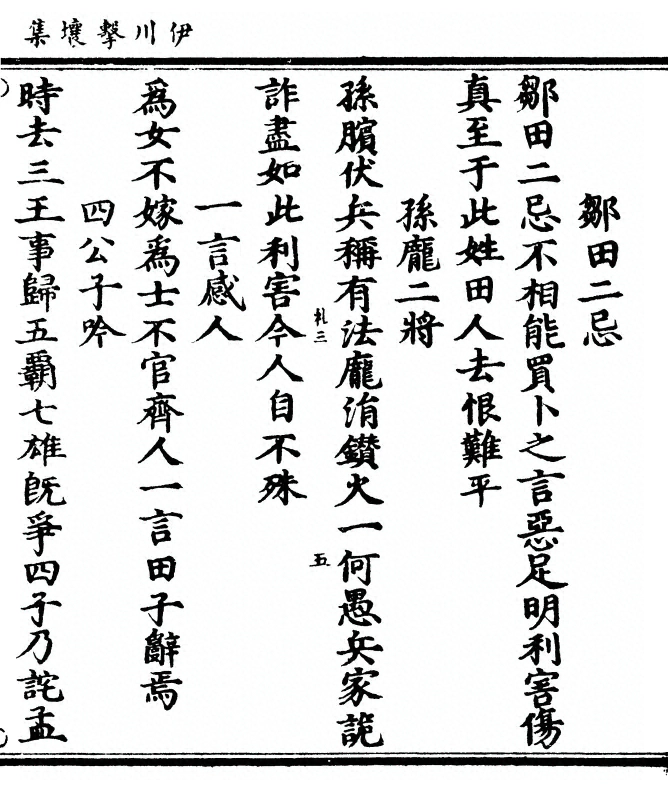 伊川擊壤集
鄒田二忌
鄒田二忌不相能買卜之言惡足明利害傷
真至于此姓田人去恨難平
孫龐二將
孫臏伏兵稱有法龐涓鑽火一何愚兵家詭
詐盡如此利害今人自不殊
一言感人
為女不嫁為士不官齊人一言田子辭焉
四公子吟
時去三王事歸五覇七雄旣爭四子乃詫孟
札三
五